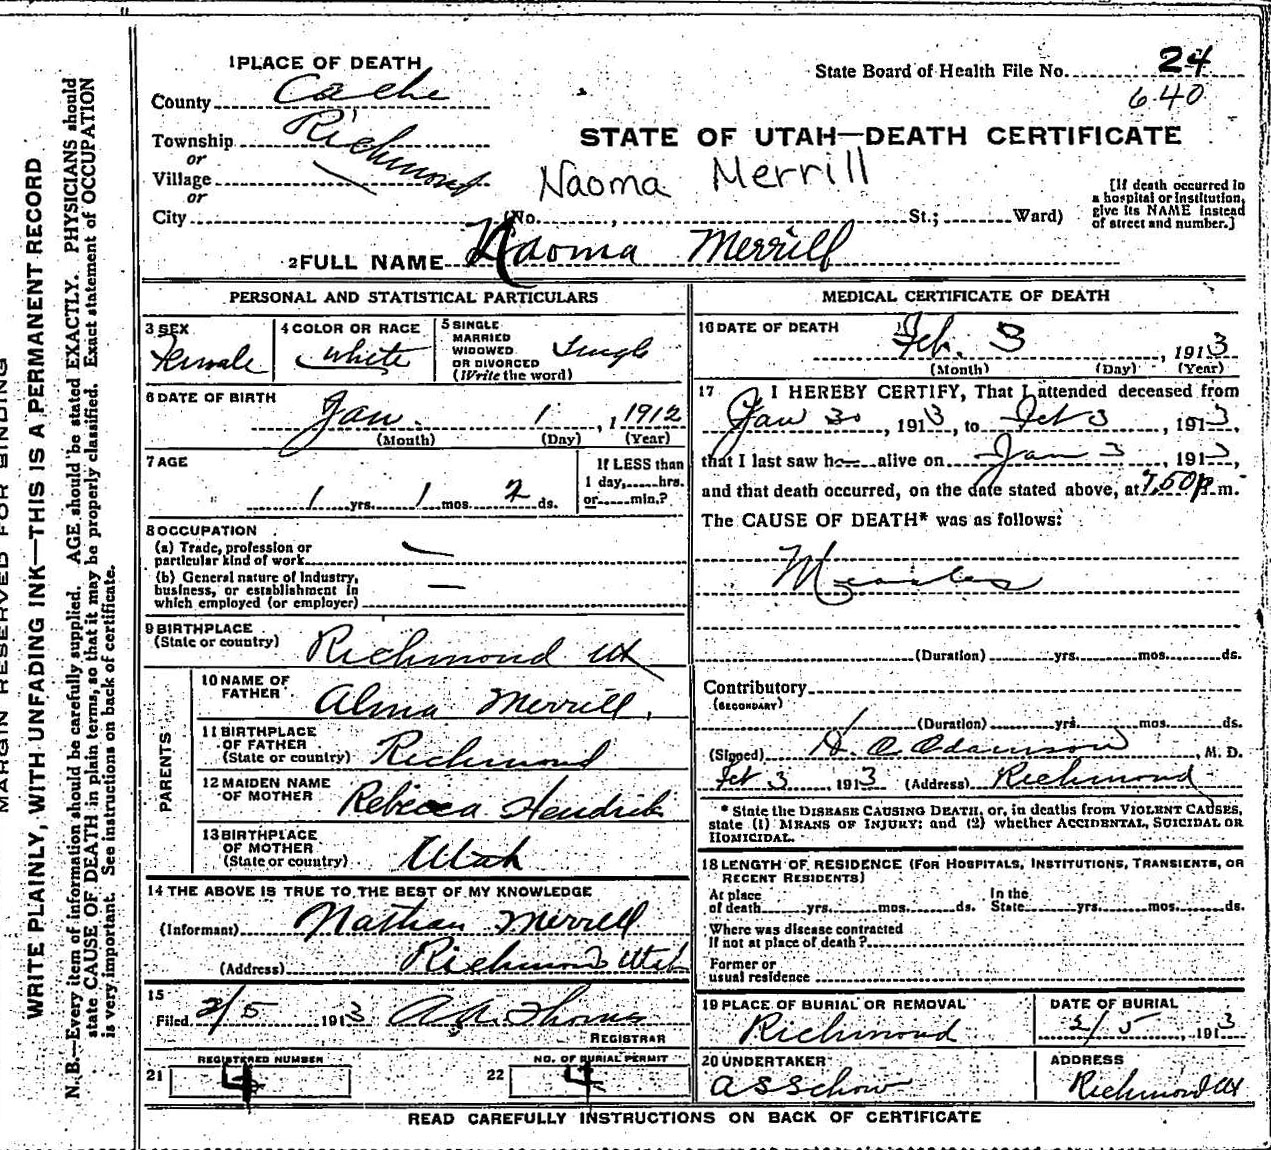 1 PLACE OF DEATH
County Cache
Township Richmond
or
Village
or
City
State Board of Health File No. 24
640
STATE OF UTAH—DEATH CERTIFICATE
Naoma Merrill
(No. , St.; Ward)
[If death occurred in
a hospital or institution,
give its NAME instead
of street and number.]
2 FULL NAME Naoma Merrill
PERSONAL AND STATISTICAL PARTICULARS
3 SEX
Female
4 COLOR OR RACE
White
5 SINGLE
MARRIED
WIDOWED
OR DIVORCED
(Write the word)
Single
6 DATE OF BIRTH
Jan. 1, 1 1912
(Month) (Day) (Year)
7 AGE
" 1 yrs. 1 mos. 2 ds.
If LESS than
1 day,......hrs.
or......min.?
8 OCCUPATION
(a) Trade, profession or
particular kind of work —
(b) General nature of industry,
business, or establishment in
which employed (or employer) —
9 BIRTHPLACE
(State or country) Richmond Ut
PARENTS
10 NAME OF
FATHER Alma Merrill,
11 BIRTHPLACE
OF FATHER
(State or country) Richmond
12 MAIDEN NAME
OF MOTHER Rebecca Hendricks
13 BIRTHPLACE
OF MOTHER
(State or country) Utah
14 THE ABOVE IS TRUE TO THE BEST OF MY KNOWLEDGE
(Informant) Nathan Merrill
(Address) Richmond Utah
15
Filed 2/5 1913 Thomas
REGISTRAR
REGISTERED NUMBER
21 4
NO. OF BURIAL PERMIT
22 4
MEDICAL CERTIFICATE OF DEATH
16 DATE OF DEATH
Feb. 3, 1913
(Month) (Day) (Year)
17 I HEREBY CERTIFY, That I attended deceased from
Jan 30, 1913, to Feb 3, 1913,
that I last saw h alive on Jan 3, 1913,
and that death occurred, on the date stated above, at 7,50 p.m.
The CAUSE OF DEATH* was as follows:
Measles
(Duration) yrs. mos. ds.
Contributory
(SECONDARY)
(Duration) yrs. mos. ds.
(Signed) Adamson, M. D.
Feb 3 1913 (Address) Richmond
* State the DISEASE CAUSING DEATH, or, in deaths from VIOLENT CAUSES,
state (1) MEANS OF INJURY; and (2) whether ACCIDENTAL, SUICIDAL OR
HOMICIDAL.
18 LENGTH OF RESIDENCE (FOR HOSPITALS, INSTITUTIONS, TRANSIENTS, OR
RECENT RESIDENTS)
At place
of death yrs. mos. ds.
In the
State yrs. mos. ds.
Where was disease contracted
If not at place of death?
Former or
usual residence
19 PLACE OF BURIAL OR REMOVAL
Richmond
DATE OF BURIAL
2/5, 1913
20 UNDERTAKER
A S Schow
ADDRESS
Richmond Ut
READ CAREFULLY INSTRUCTIONS ON BACK OF CERTIFICATE
MARGIN RESERVED FOR BINDING
WRITE PLAINLY, WITH UNFADING INK—THIS IS A PERMANENT RECORD
N. B.—Every item of information should be carefully supplied. AGE should be stated EXACTLY. PHYSICIANS should
state CAUSE OF DEATH in plain terms, so that it may be properly classified. Exact statement of OCCUPATION
is very important. See instructions on back of certificate.